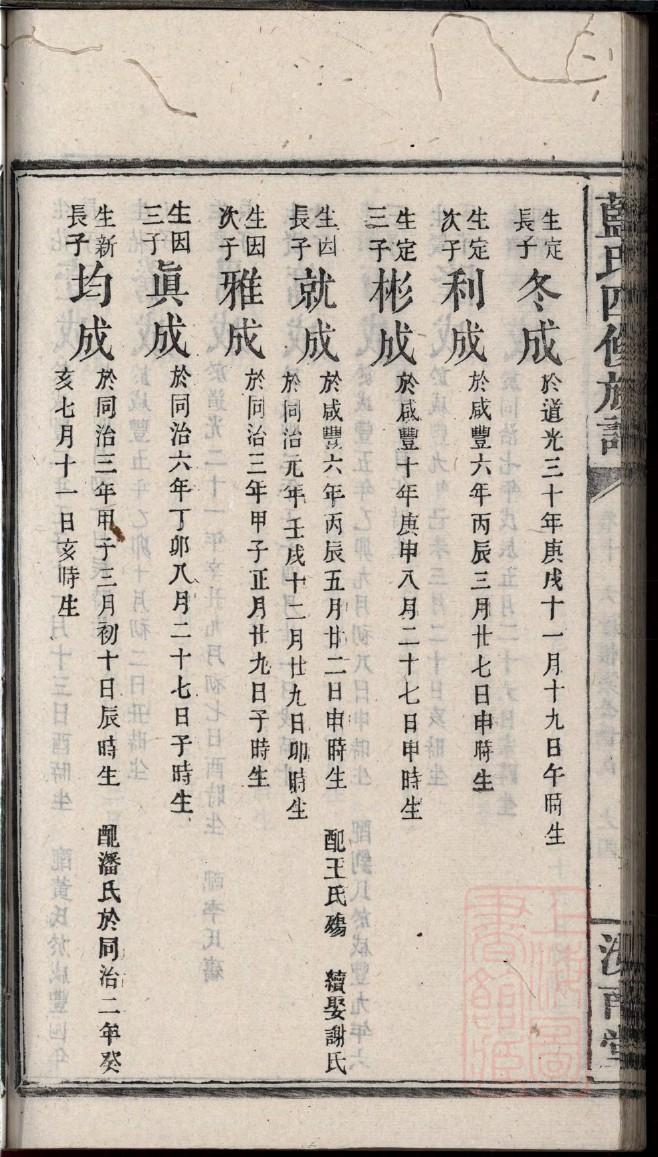 藍氏四修族譜
汝南堂
定生長子 冬成 於道光三十年庚戌十一月十九日午時生
定生次子 利成 於咸豐六年丙辰三月廿七日申時生
定生三子 彬成 於咸豐十年庚申八月二十七日申時生
因生長子 就成 於咸豐六年丙辰五月廿二日申時生 配王氏殤 續娶謝氏
於同治元年壬戌十二月廿九日卯時生
因生次子 雅成 於同治三年甲子正月廿九日子時生
因生三子 眞成 於同治六年丁卯八月二十七日子時生
新生長子 均成 於同治三年甲子三月初十日辰時生 配潘氏於同治二年癸
亥七月十一日亥時生